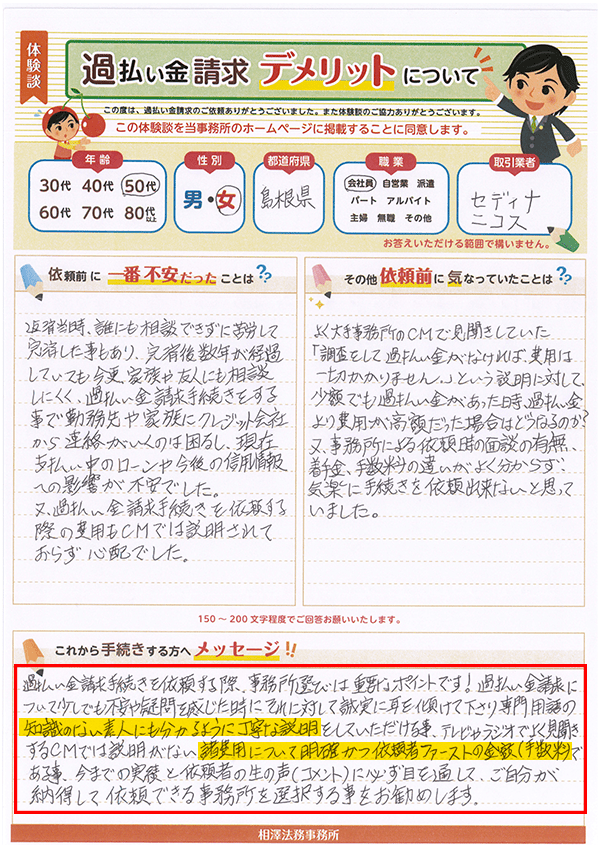 体験談
過払い金請求 デメリットについて
この度は、過払い金請求のご依頼ありがとうございました。また体験談のご協力ありがとうございます。
この体験談を当事務所のホームページに掲載することに同意します。
年齢
30代 40代 50代
60代 70代 80代以上
性別
男・女
都道府県
島根県
職業
会社員 自営業 派遣
パート アルバイト
主婦 無職 その他
取引業者
セディナ
ニコス
お答えいただける範囲で構いません。
依頼前に 一番不安だった ことは??
返済当時、誰にも相談できずに苦労して
完済した事もあり、完済後数年が経過
していても今更、家族や友人にも相談
しにくく、過払い金請求手続きをする
事で勤務先や家族にクレジット会社
から連絡がいくのは困るし、現在
支払い中のローンや今後の信用情報
への影響が不安でした。
又、過払い金請求手続きを依頼する
際の費用もCMでは説明されて
おらず心配でした。
その他 依頼前に気なっていたことは??
よく大手事務所のCMで見聞きしていた
「調査をして過払い金がなければ、費用は
一切かかりません。」という説明に対して、
少額でも過払い金があった時、過払い金
より費用が高額だった場合はどうなるのか?
又、事務所による依頼時の面談の有無、
着手金、手数料の違いがよく分からず、
気楽に手続きを依頼出来ないと思って
いました。
150～200文字程度でご回答お願いいたします。
これから手続きする方へ メッセージ!!
過払い金請求手続きを依頼する際、事務所選びは重要なポイントです！過払い金請求に
ついて少しでも不安や疑問を感じた時にそれに対して誠実に耳を傾けて下さり専門用語の
知識のない素人にも分かるように丁寧な説明をしていただける事、テレビやラジオでよく見聞き
するCMでは説明がない諸費用について明確かつ依頼者ファーストの金額(手数料)で
ある事、今までの実績と依頼者の生の声(コメント)に必ず目を通して、ご自分が
納得して依頼できる事務所を選択する事をお勧めします。
相澤法務事務所